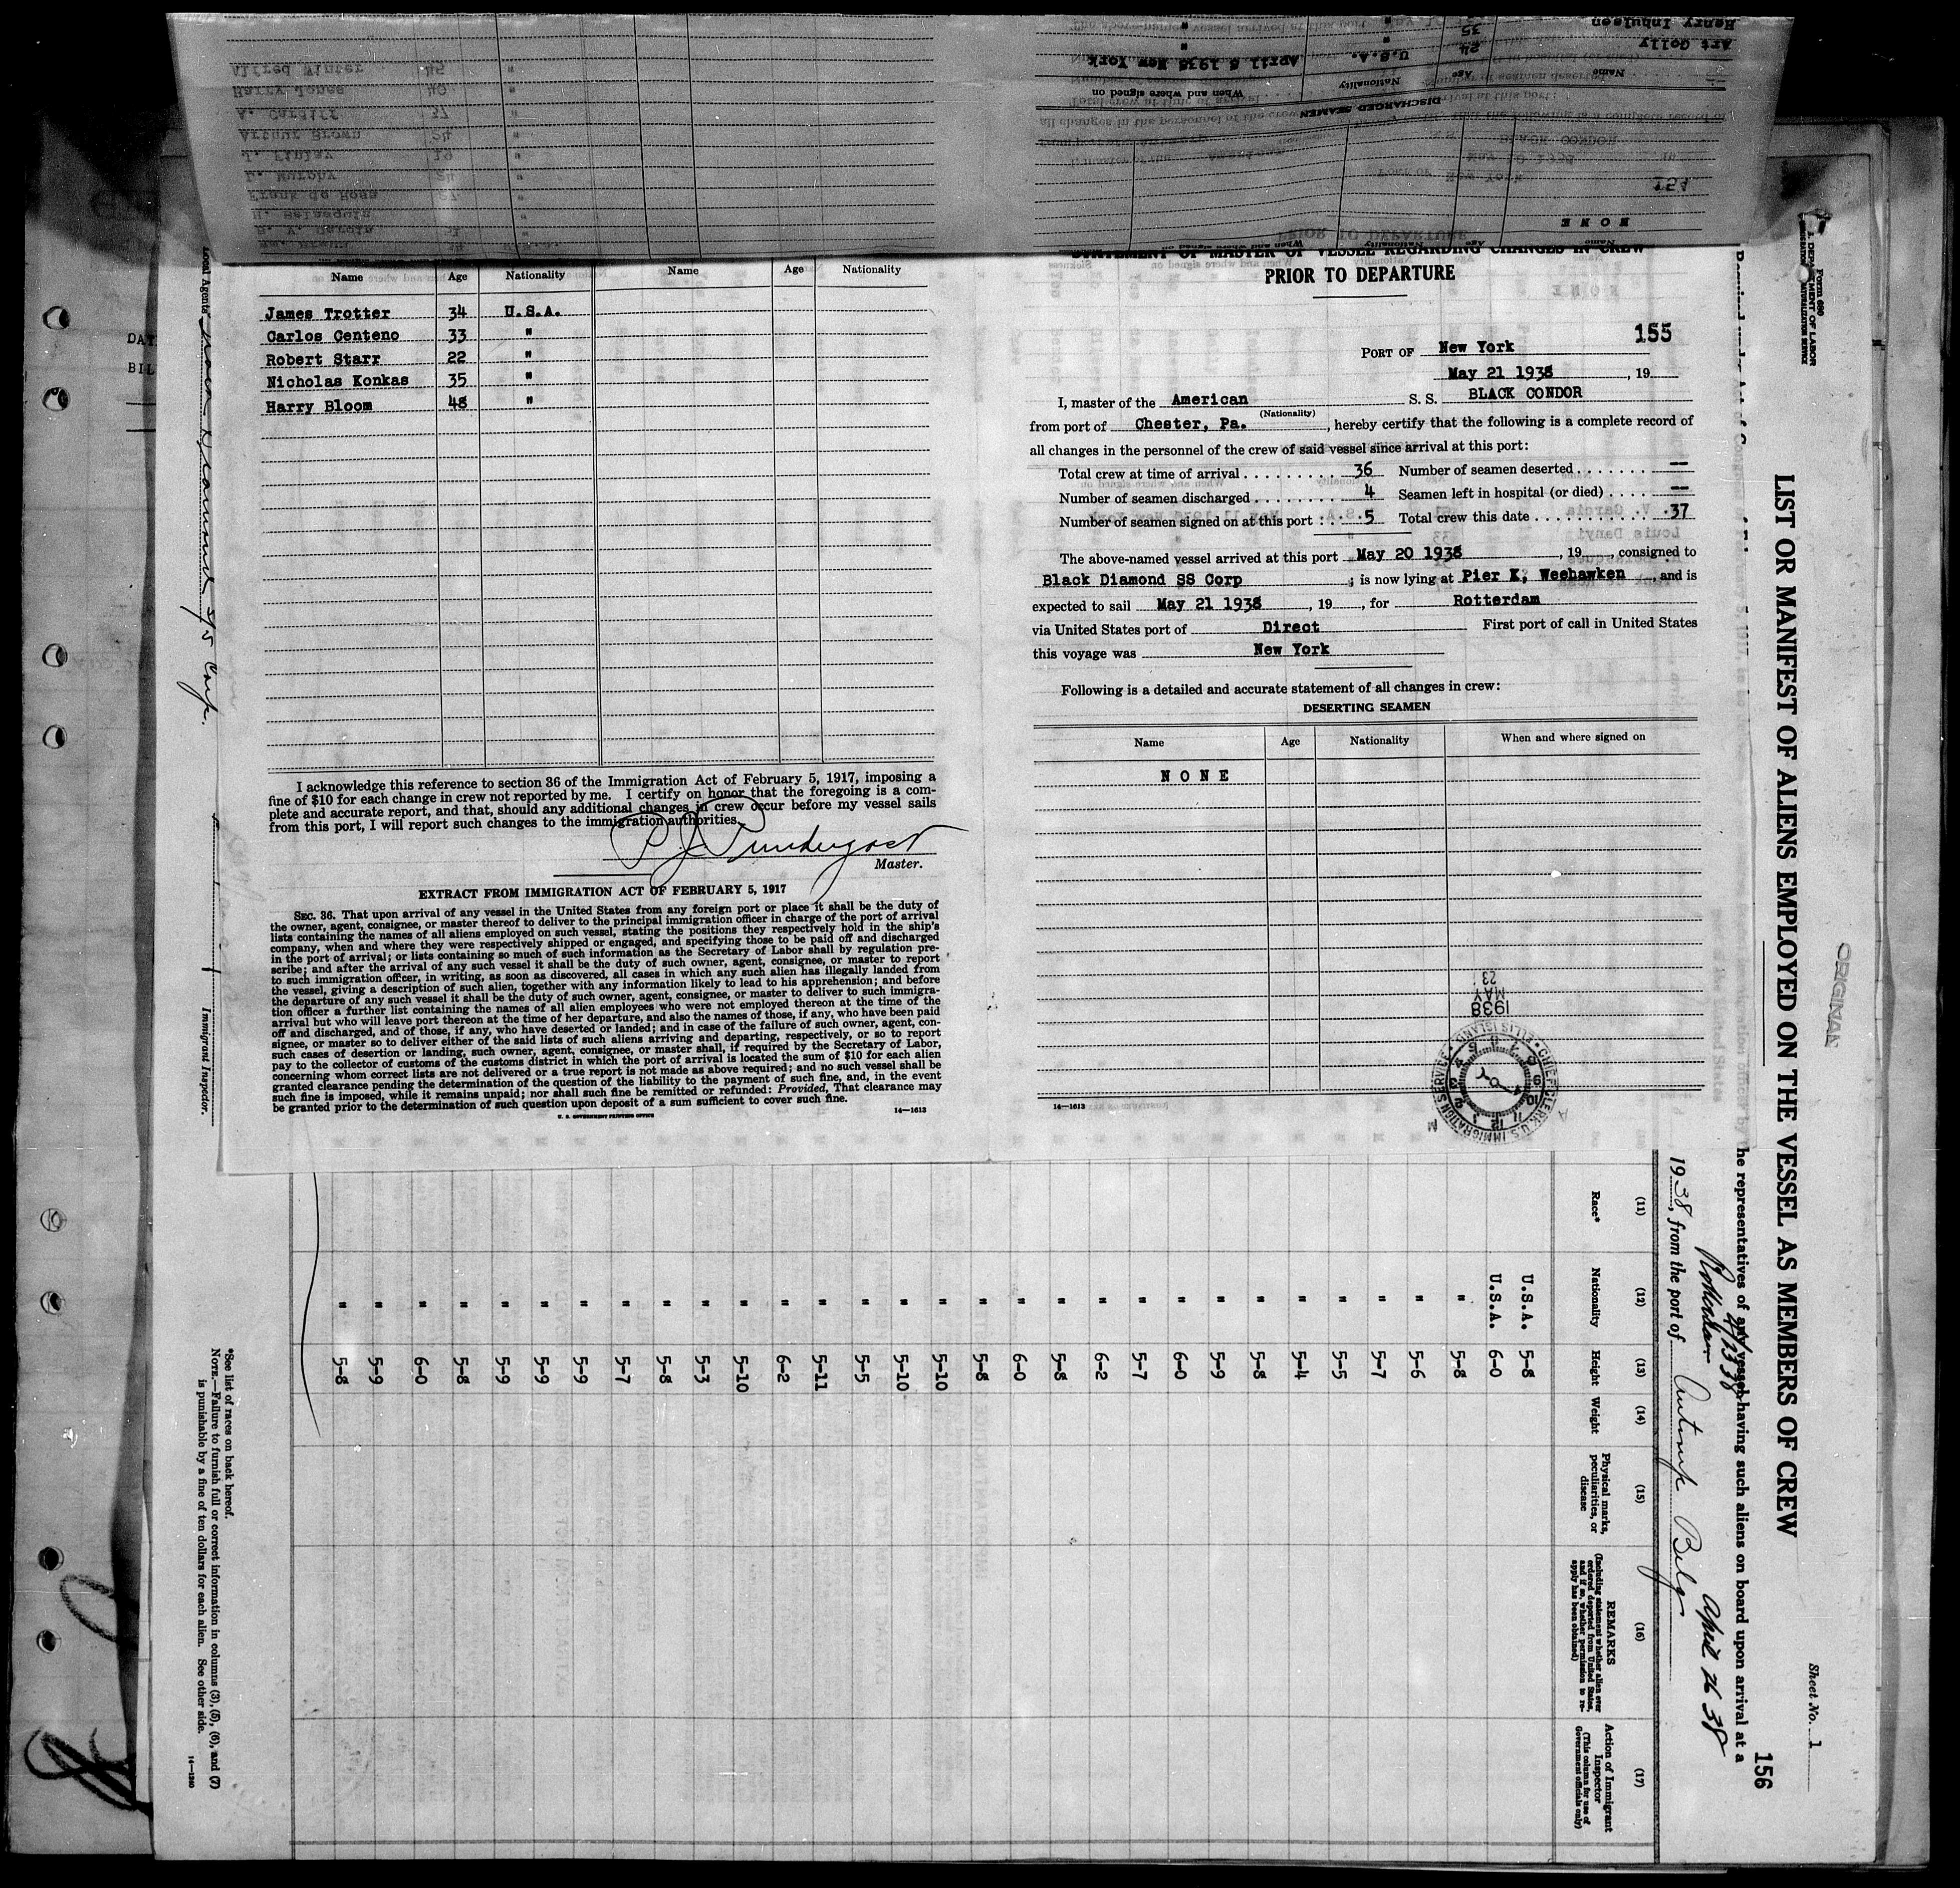 Name Age Nationality Name Age Nationality
James Trotter 34 U.S.A.
Carlos Centeno 33 "
Robert Starr 22 "
Nicholas Konkas 35 "
Harry Bloom 48 "
I acknowledge this reference to section 36 of the Immigration Act of February 5, 1917, imposing a
fine of $10 for each change in crew not reported by me. I certify on honor that the foregoing is a com-
plete and accurate report, and that, should any additional changes in crew occur before my vessel sails
from this port, I will report such changes to the immigration authorities.
Master.
EXTRACT FROM IMMIGRATION ACT OF FEBRUARY 5, 1917
SEC. 36. That upon arrival of any vessel in the United States from any foreign port or place it shall be the duty of
the owner, agent, consignee, or master thereof to deliver to the principal immigration officer in charge of the port of arrival
lists containing the names of all aliens employed on such vessel, stating the positions they respectively hold in the ship's
company, when and where they were respectively shipped or engaged, and specifying those to be paid off and discharged
in the port of arrival; or lists containing so much of such information as the Secretary of Labor shall by regulation pre-
scribe; and after the arrival of any such vessel it shall be the duty of such owner, agent, consignee, or master to report
to such immigration officer, in writing, as soon as discovered, all cases in which any such alien has illegally landed from
the vessel, giving a description of such alien, together with any information likely to lead to his apprehension; and before
the departure of any such vessel it shall be the duty of such owner, agent, consignee, or master to deliver to such immigra-
tion officer a further list containing the names of all alien employees who were not employed thereon at the time of the
arrival but who will leave port thereon at the time of her departure, and also the names of those, if any, who have been paid
off and discharged, and of those, if any, who have deserted or landed; and in case of the failure of such owner, agent, con-
signee, or master so to deliver either of the said lists of such aliens arriving and departing, respectively, or so to report
such cases of desertion or landing, such owner, agent, consignee, or master shall, if required by the Secretary of Labor,
pay to the collector of customs of the customs district in which the port of arrival is located the sum of $10 for each alien
concerning whom correct lists are not delivered or a true report is not made as above required; and no such vessel shall be
granted clearance pending the determination of the question of the liability to the payment of such fine, and, in the event
such fine is imposed, while it remains unpaid; nor shall such fine be remitted or refunded: Provided, That clearance may
be granted prior to the determination of such question upon deposit of a sum sufficient to cover such fine.
U. S. GOVERNMENT PRINTING OFFICE 14—1613
STATEMENT OF MASTER OF VESSEL REGARDING CHANGES IN CREW
PRIOR TO DEPARTURE
155
PORT OF New York
May 21 1938, 19
I, master of the American S. S. BLACK CONDOR
(Nationality)
from port of Chester, Pa., hereby certify that the following is a complete record of
all changes in the personnel of the crew of said vessel since arrival at this port:
Total crew at time of arrival 36 Number of seamen deserted —
Number of seamen discharged 4 Seamen left in hospital (or died) —
Number of seamen signed on at this port 5 Total crew this date 37
The above-named vessel arrived at this port May 20 1938, 19, consigned to
Black Diamond SS Corp; is now lying at Pier K, Weehawken, and is
expected to sail May 21 1938, 19, for Rotterdam
via United States port of Direct First port of call in United States
this voyage was New York
Following is a detailed and accurate statement of all changes in crew:
DESERTING SEAMEN
Name Age Nationality When and where signed on
NONE
1938
MAY
23
CHIEF CLERK, U.S. IMMIGRATION SERVICE ELLIS ISLAND
14—1613
DISCHARGED SEAMEN
Name Age Nationality When and where signed on
Art Golly 24 U.S.A. April 5 1938 New York
Henry Inhulsen 35 " "
Alfred Winter 45 "
Harry Jones 40 "
A. Cardiff 37 "
Arthur Brown 24 "
J. Finlay 19 "
Frank de Rosa
154
Form 680
ORIGINAL
Sheet No. 1
156
LIST OR MANIFEST OF ALIENS EMPLOYED ON THE VESSEL AS MEMBERS OF CREW
he representatives of any vessel having such aliens on board upon arrival at a
Rotterdam April 26 38
1938, from the port of Antwerp Belg
(11) (12) (13) (14) (15) (16) (17)
Race* Nationality Height Weight Physical marks, peculiarities, or disease REMARKS Action of Immigrant Inspector
(Including statement whether alien ever ordered deported from United States, and if so, whether permission to re-apply has been obtained)
(This column for use of Government officials only)
U.S.A. 5-8
U.S.A. 6-0
" 5-8
" 5-6
" 5-7
" 5-5
" 5-4
" 5-8
" 5-9
" 6-0
" 5-7
" 6-2
" 5-8
" 6-0
" 5-8
" 5-10
" 5-10
" 5-5
" 5-11
" 6-2
" 5-10
" 5-3
" 5-8
" 5-7
" 5-9
" 5-9
" 5-9
" 5-8
" 6-0
" 5-9
" 5-8
*See list of races on back hereof.
NOTE.—Failure to furnish full or correct information in columns (3), (5), (6), and (7)
is punishable by a fine of ten dollars for each alien. See other side.
14—1240
Local Agents Black Diamond S/S Corp.
Immigrant Inspector.